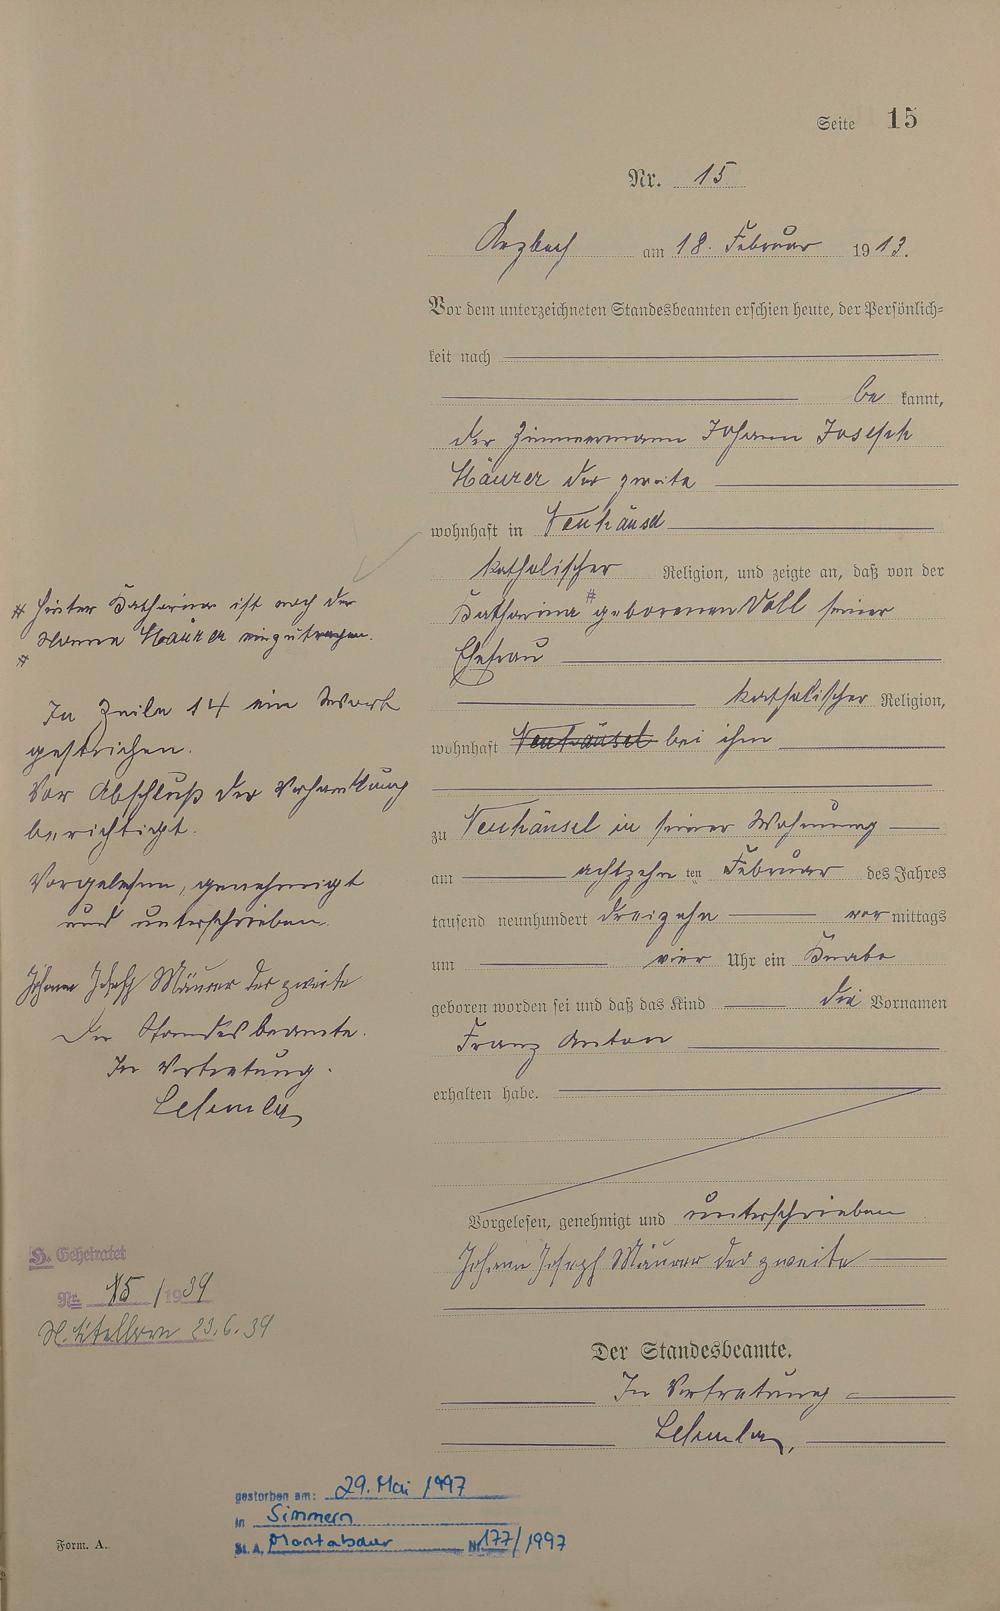 Seite 15
Nr. 15
Arzbach am 18. Februar 1913.
Vor dem unterzeichneten Standesbeamten erschien heute, der Persönlich-
keit nach
be kannt,
der Zimmermann Johann Joseph
Mäurer der zweite
wohnhaft in Neuhäusel
katholischer Religion, und zeigte an, daß von der
Katharina # geborenen Voll seiner
Ehefrau
katholischer Religion,
wohnhaft Neuhäusel bei ihm
zu Neuhäusel in seiner Wohnung
am achtzehn ten Februar des Jahres
tausend neunhundert dreizehn vor mittags
um vier Uhr ein Knabe
geboren worden sei und daß das Kind die Vornamen
Franz Anton
erhalten habe.
Vorgelesen, genehmigt und unterschrieben
Johann Joseph Mäurer der zweite
Der Standesbeamte.
In Vertretung
# Hinter Katharina ist noch der
Name Mäurer einzutragen.
#
In Zeile 14 ein Wort
gestrichen.
Vor Abschluß der Verhandlung
berichtigt.
Vorgelesen, genehmigt
und unterschrieben.
Johann Joseph Mäurer der zweite
Der Standesbeamte.
In Vertretung.
H. Geheiratet
Nr. 15/1939
23.6.39
gestorben am: 29. Mai 1997
in Simmern
St. A. Montabaur Nr. 177/1997
Form. A.